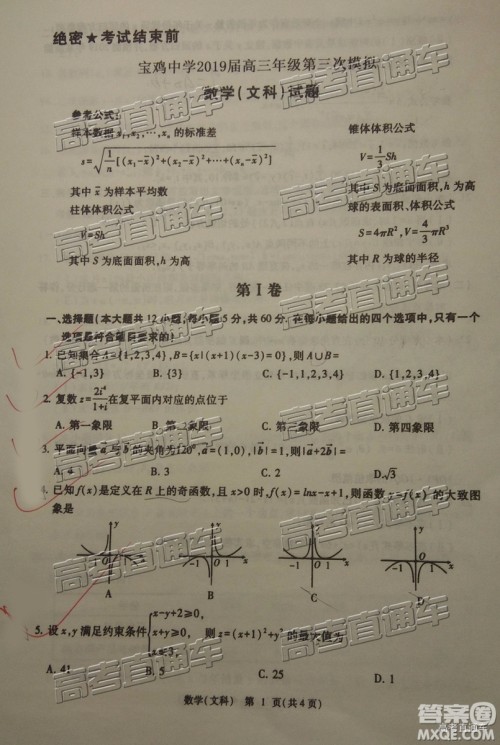 绝密★考试结束前
宝鸡中学2019届高三年级第三次模拟
数学(文科)试题
参考公式:
样本数据x₁,x₂,…,xₙ的标准差
s=√(1/n[(x₁-x̄)²+(x₂-x̄)²+…+(xₙ-x̄)²])
其中x̄为样本平均数
柱体体积公式
V=Sh
其中S为底面面积,h为高
锥体体积公式
V=1/3Sh
其中S为底面面积,h为高
球的表面积、体积公式
S=4πR²,V=4/3πR³
其中R为球的半径
第Ⅰ卷
一、选择题(本大题共12小题,每小题5分,共60分.在每小题给出的四个选项中,只有一个
选项是符合题目要求的)
1.已知集合A={1,2,3,4},B={x|(x+1)(x-3)=0},则A∪B=
A.{-1,3} B.{3} C.{-1,2,3,4} D.{-1,1,2,3,4}
2.复数z=2i⁴/(1+i)在复平面内对应的点位于
A.第一象限 B.第二象限 C.第三象限 D.第四象限
3.平面向量a⃗与b⃗的夹角为120°,a⃗=(1,0),|b⃗|=1,则|a⃗+2b⃗|=
A.4 B.3 C.2 D.√3
4.已知f(x)是定义在R上的奇函数,且x>0时,f(x)=lnx-x+1,则函数y=f(x)的大致图
象是
y -1 O 1 x
y -1 O 1 x
y -1 O 1 x
y -1 O 1 x
A B C D
5.设x,y满足约束条件{x-y+2≥0, x+y≥0, x≤3, 则z=(x+1)²+y²的最大值为
A.41 B.5 C.25 D.1
数学(文科) 第 1 页(共4页)
高考直通车
高考直通车
高考直通车
高考直通车
高考直通车
高考直通车
答案圈
MXQE.COM